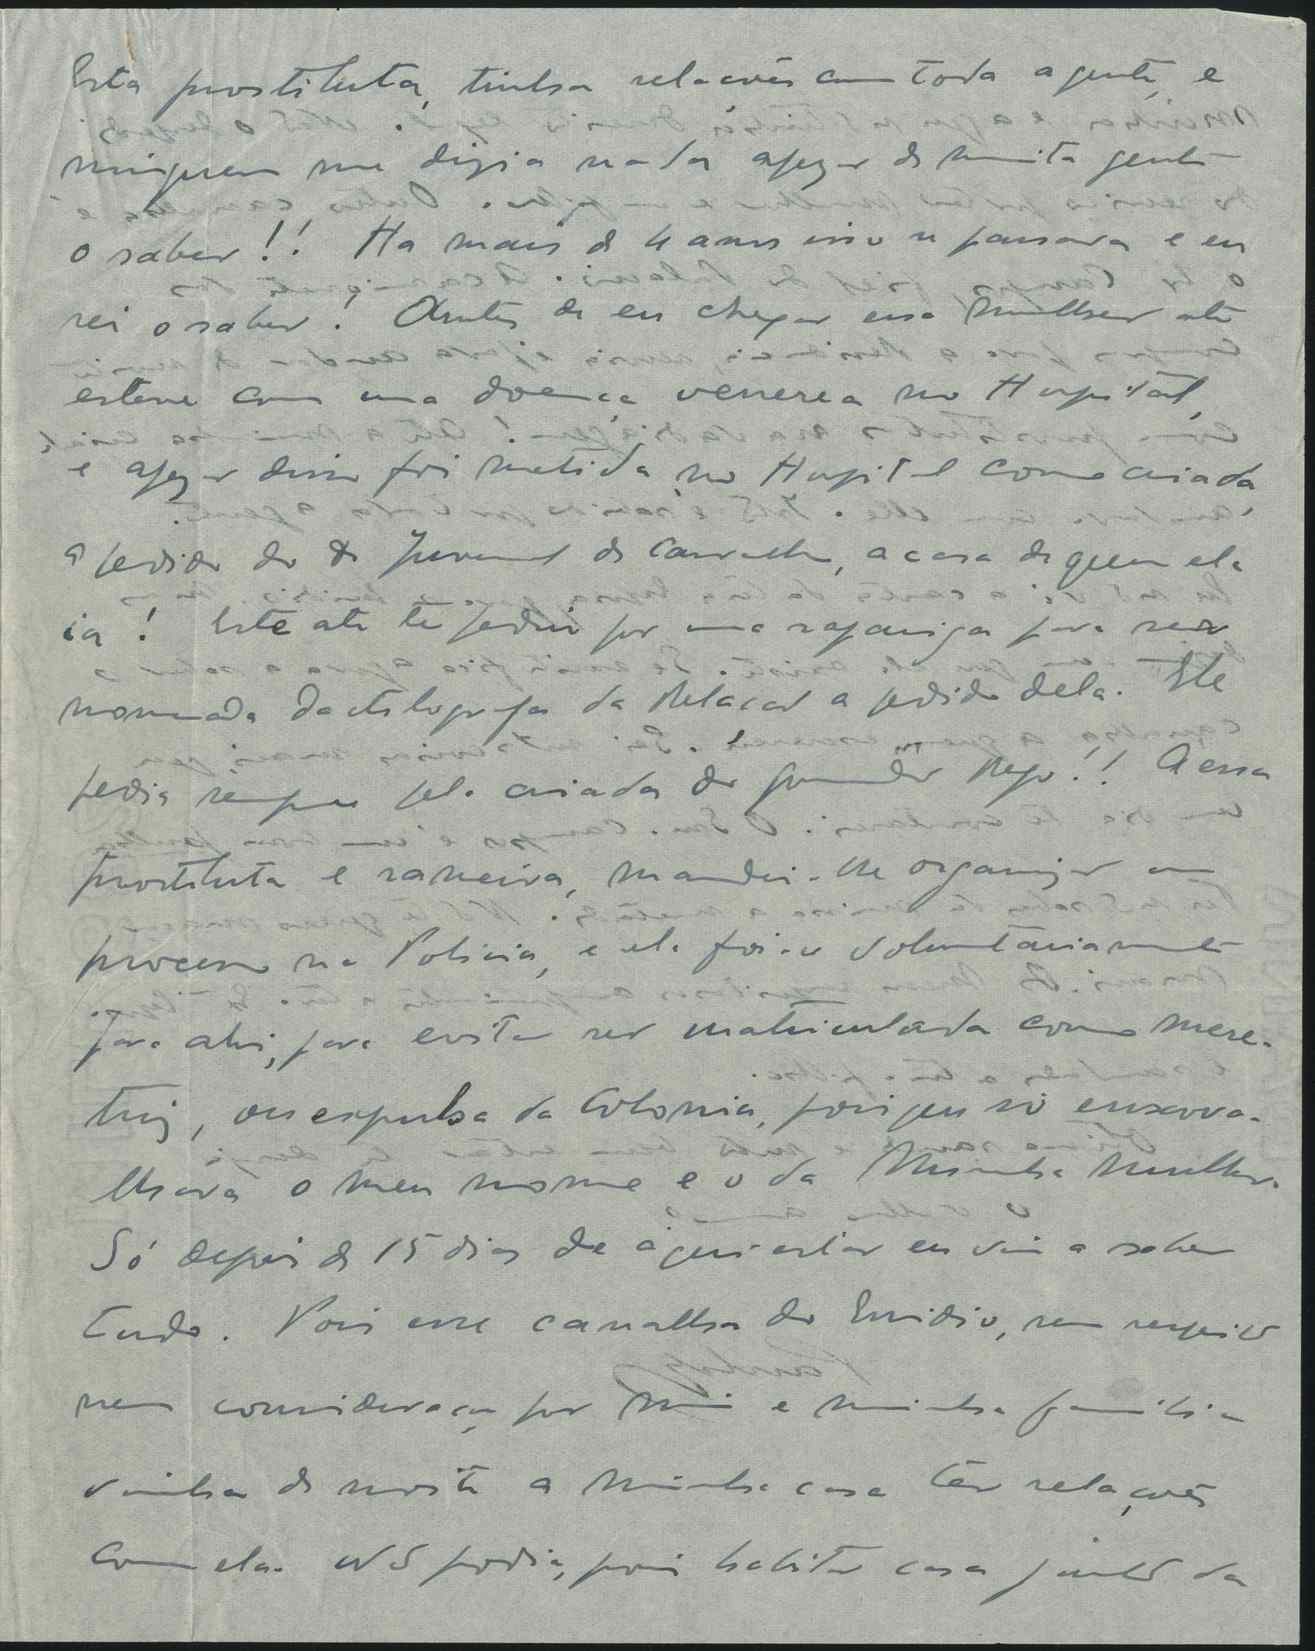 Esta prostituta, tinha relacões com toda a gente, e
ninguem me dizia nada apezar de muita gente
o saber!! Ha mais de 4 anos isso se passava e eu
sei o saber! Antes de eu chegar essa mulher até
esteve com uma doença venerea no Hospital,
e apezar disso foi metida no Hospital como criada,
a pedido do Dr Juvenal de Carvalho, a casa de quem ela
ia! Este até te pediu por uma rapariga para ser
nomeada dactilografa da Relacao a pedido dela. Ele
pedia sempre pela criada do Rego!! A essa
prostituta e rameira, mandei-lhe organizar um
processo na Policia, e ela foi-se voluntariamente
para ahi, para evitar ser matriculada como mere-
triz, ou expulsa da Colonia, porque só enxova-
lhava o meu nome e o da Minha Mulher.
Só depois de 15 dias de aqui estar eu vim a saber
tudo. Pois esse canalha do Emidio, sem respeito
nem consideraçao por mim e minha familia
vinha de noite a minha casa ter relaçoes
com ela. Não podia, pois habitar casa junto da